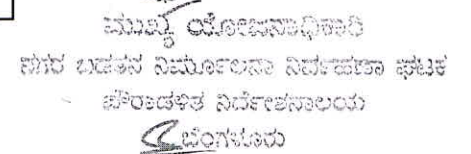 ಮುಖ್ಯ ಯೋಜನಾಧಿಕಾರಿ
ನಗರ ಬಡತನ ನಿರ್ಮೂಲನಾ ನಿರ್ವಹಣಾ ಘಟಕ
ಪೌರಾಡಳಿತ ನಿರ್ದೇಶನಾಲಯ
ಬೆಂಗಳೂರು